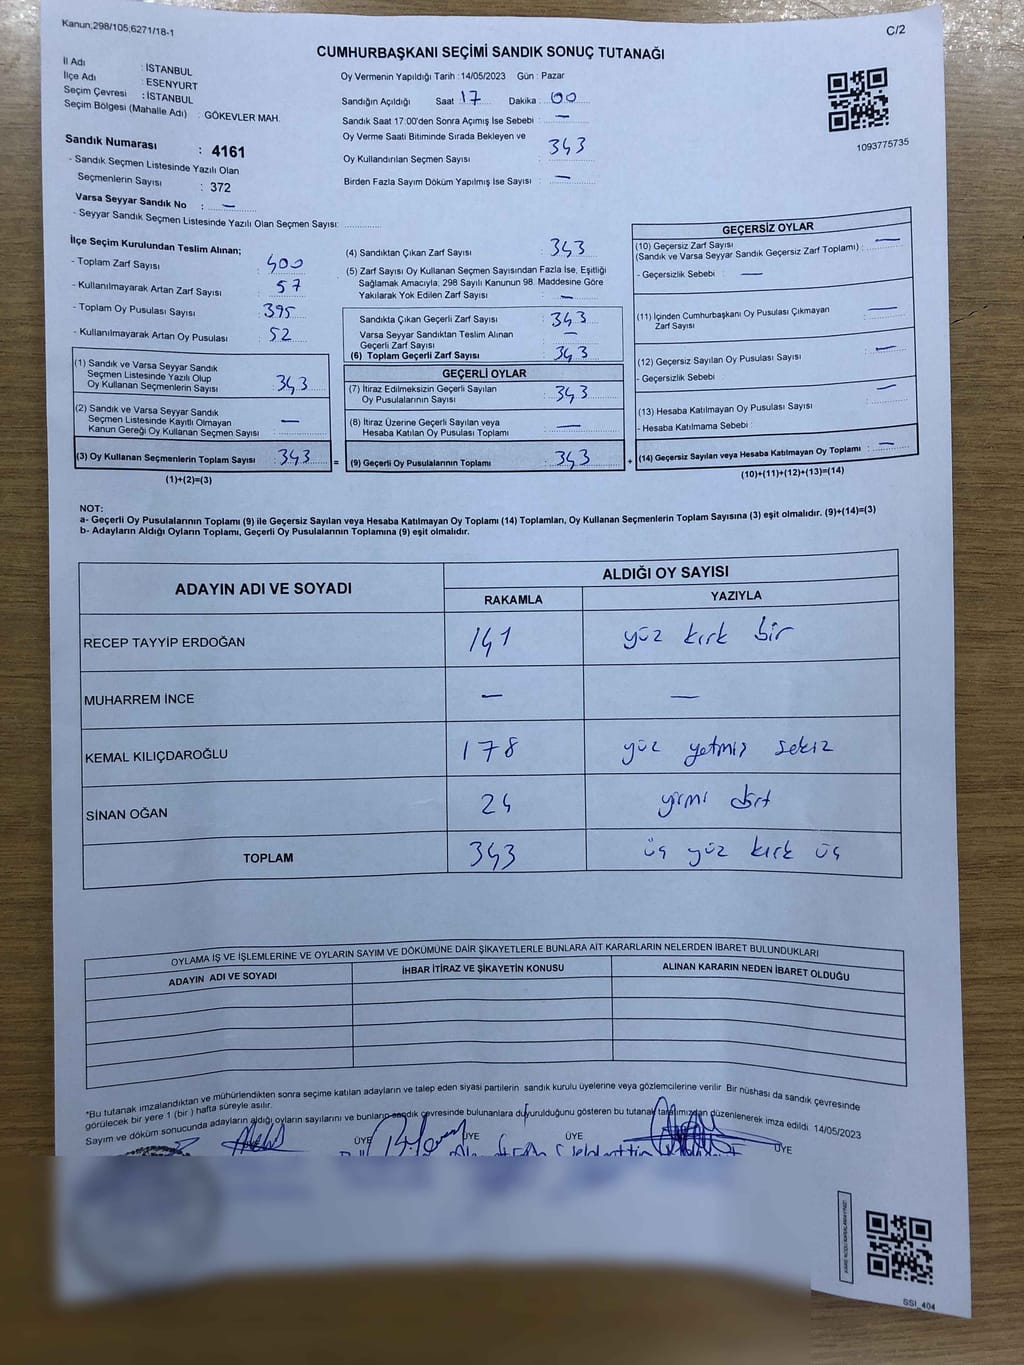 Kanun;298/105;6271/18-1
C/2
CUMHURBAŞKANI SEÇİMİ SANDIK SONUÇ TUTANAĞI
İl Adı : İSTANBUL
İlçe Adı : ESENYURT
Seçim Çevresi : İSTANBUL
Seçim Bölgesi (Mahalle Adı) : GÖKEVLER MAH.
Sandık Numarası : 4161
- Sandık Seçmen Listesinde Yazılı Olan
Seçmenlerin Sayısı : 372
Varsa Seyyar Sandık No : —
- Seyyar Sandık Seçmen Listesinde Yazılı Olan Seçmen Sayısı:
Oy Vermenin Yapıldığı Tarih : 14/05/2023 Gün : Pazar
Sandığın Açıldığı Saat : 17 Dakika : 00
Sandık Saat 17:00'den Sonra Açımış İse Sebebi : —
Oy Verme Saati Bitiminde Sırada Bekleyen ve
Oy Kullandırılan Seçmen Sayısı : 343
Birden Fazla Sayım Döküm Yapılmış İse Sayısı : —
1093775735
İlçe Seçim Kurulundan Teslim Alınan;
- Toplam Zarf Sayısı : 400
- Kullanılmayarak Artan Zarf Sayısı : 57
- Toplam Oy Pusulası Sayısı : 395
- Kullanılmayarak Artan Oy Pusulası : 52
(1) Sandık ve Varsa Seyyar Sandık
Seçmen Listesinde Yazılı Olup
Oy Kullanan Seçmenlerin Sayısı : 343
(2) Sandık ve Varsa Seyyar Sandık
Seçmen Listesinde Kayıtlı Olmayan
Kanun Gereği Oy Kullanan Seçmen Sayısı : —
(3) Oy Kullanan Seçmenlerin Toplam Sayısı : 343
(1)+(2)=(3)
(4) Sandıktan Çıkan Zarf Sayısı : 343
(5) Zarf Sayısı Oy Kullanan Seçmen Sayısından Fazla İse, Eşitliği
Sağlamak Amacıyla, 298 Sayılı Kanunun 98. Maddesine Göre
Yakılarak Yok Edilen Zarf Sayısı : —
Sandıkta Çıkan Geçerli Zarf Sayısı : 343
Varsa Seyyar Sandıktan Teslim Alınan
Geçerli Zarf Sayısı : —
(6) Toplam Geçerli Zarf Sayısı : 343
GEÇERLİ OYLAR
(7) İtiraz Edilmeksizin Geçerli Sayılan
Oy Pusulalarının Sayısı : 343
(8) İtiraz Üzerine Geçerli Sayılan veya
Hesaba Katılan Oy Pusulası Toplamı : —
= (9) Geçerli Oy Pusulalarının Toplamı : 343 +
GEÇERSİZ OYLAR
(10) Geçersiz Zarf Sayısı
(Sandık ve Varsa Seyyar Sandık Geçersiz Zarf Toplamı) : —
- Geçersizlik Sebebi : —
(11) İçinden Cumhurbaşkanı Oy Pusulası Çıkmayan
Zarf Sayısı : —
(12) Geçersiz Sayılan Oy Pusulası Sayısı : —
- Geçersizlik Sebebi
(13) Hesaba Katılmayan Oy Pusulası Sayısı : —
- Hesaba Katılmama Sebebi :
(14) Geçersiz Sayılan veya Hesaba Katılmayan Oy Toplamı : —
(10)+(11)+(12)+(13)=(14)
NOT:
a- Geçerli Oy Pusulalarının Toplamı (9) ile Geçersiz Sayılan veya Hesaba Katılmayan Oy Toplamı (14) Toplamları, Oy Kullanan Seçmenlerin Toplam Sayısına (3) eşit olmalıdır. (9)+(14)=(3)
b- Adayların Aldığı Oyların Toplamı, Geçerli Oy Pusulalarının Toplamına (9) eşit olmalıdır.
ADAYIN ADI VE SOYADI ALDIĞI OY SAYISI
RAKAMLA YAZIYLA
RECEP TAYYİP ERDOĞAN 141 yüz kırk bir
MUHARREM İNCE — —
KEMAL KILIÇDAROĞLU 178 yüz yetmiş sekiz
SİNAN OĞAN 24 yirmi dört
TOPLAM 343 üç yüz kırk üç
OYLAMA İŞ VE İŞLEMLERİNE VE OYLARIN SAYIM VE DÖKÜMÜNE DAİR ŞİKAYETLERLE BUNLARA AİT KARARLARIN NELERDEN İBARET BULUNDUKLARI
ADAYIN ADI VE SOYADI İHBAR İTİRAZ VE ŞİKAYETİN KONUSU ALINAN KARARIN NEDEN İBARET OLDUĞU
*Bu tutanak imzalandıktan ve mühürlendikten sonra seçime katılan adayların ve talep eden siyasi partilerin sandık kurulu üyelerine veya gözlemcilerine verilir. Bir nüshası da sandık çevresinde
görülecek bir yere 1 (bir) hafta süreyle asılır.
Sayım ve döküm sonucunda adayların aldığı oyların sayılarını ve bunların sandık çevresinde bulunanlara duyurulduğunu gösteren bu tutanak tarafımızdan düzenlenerek imza edildi 14/05/2023
ÜYE ÜYE ÜYE ÜYE
SSİ_404